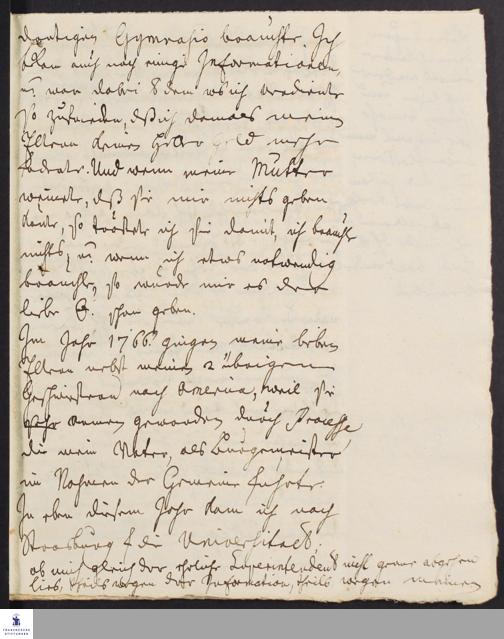 dortigen Gymnasio brauchte. Ich
bekam auch noch einige Informationen,
u. war dabei
so zufrieden, daß ich damals meinen
Eltern keinen Heller Geld mehr
kostete. Und wenn meine Mutter
weinete, daß sie mir nichts geben
könte, so tröstete ich sie damit, ich brauchte
nichts, u. wenn ich etwas nothwendig
brauchte, so würde mir es der
liebe G. schon geben.
Im Jahr 1766 gingen meine lieben
Eltern nebst meinen 2 übrigen
Geschwistern nach America, weil sie
sehr arm geworden durch Processe
die mein Vater, als Burgemeister
im Nahmen der Gemeine führte.
In eben diesem Jahr kam ich nach
Strasburg auf die Universitaet.
ob mich gleich der ehrliche Superintendent nicht gerne
lies, theils wegen der Information, theils wegen meiner
FRANCKESCHE STIFTUNGEN